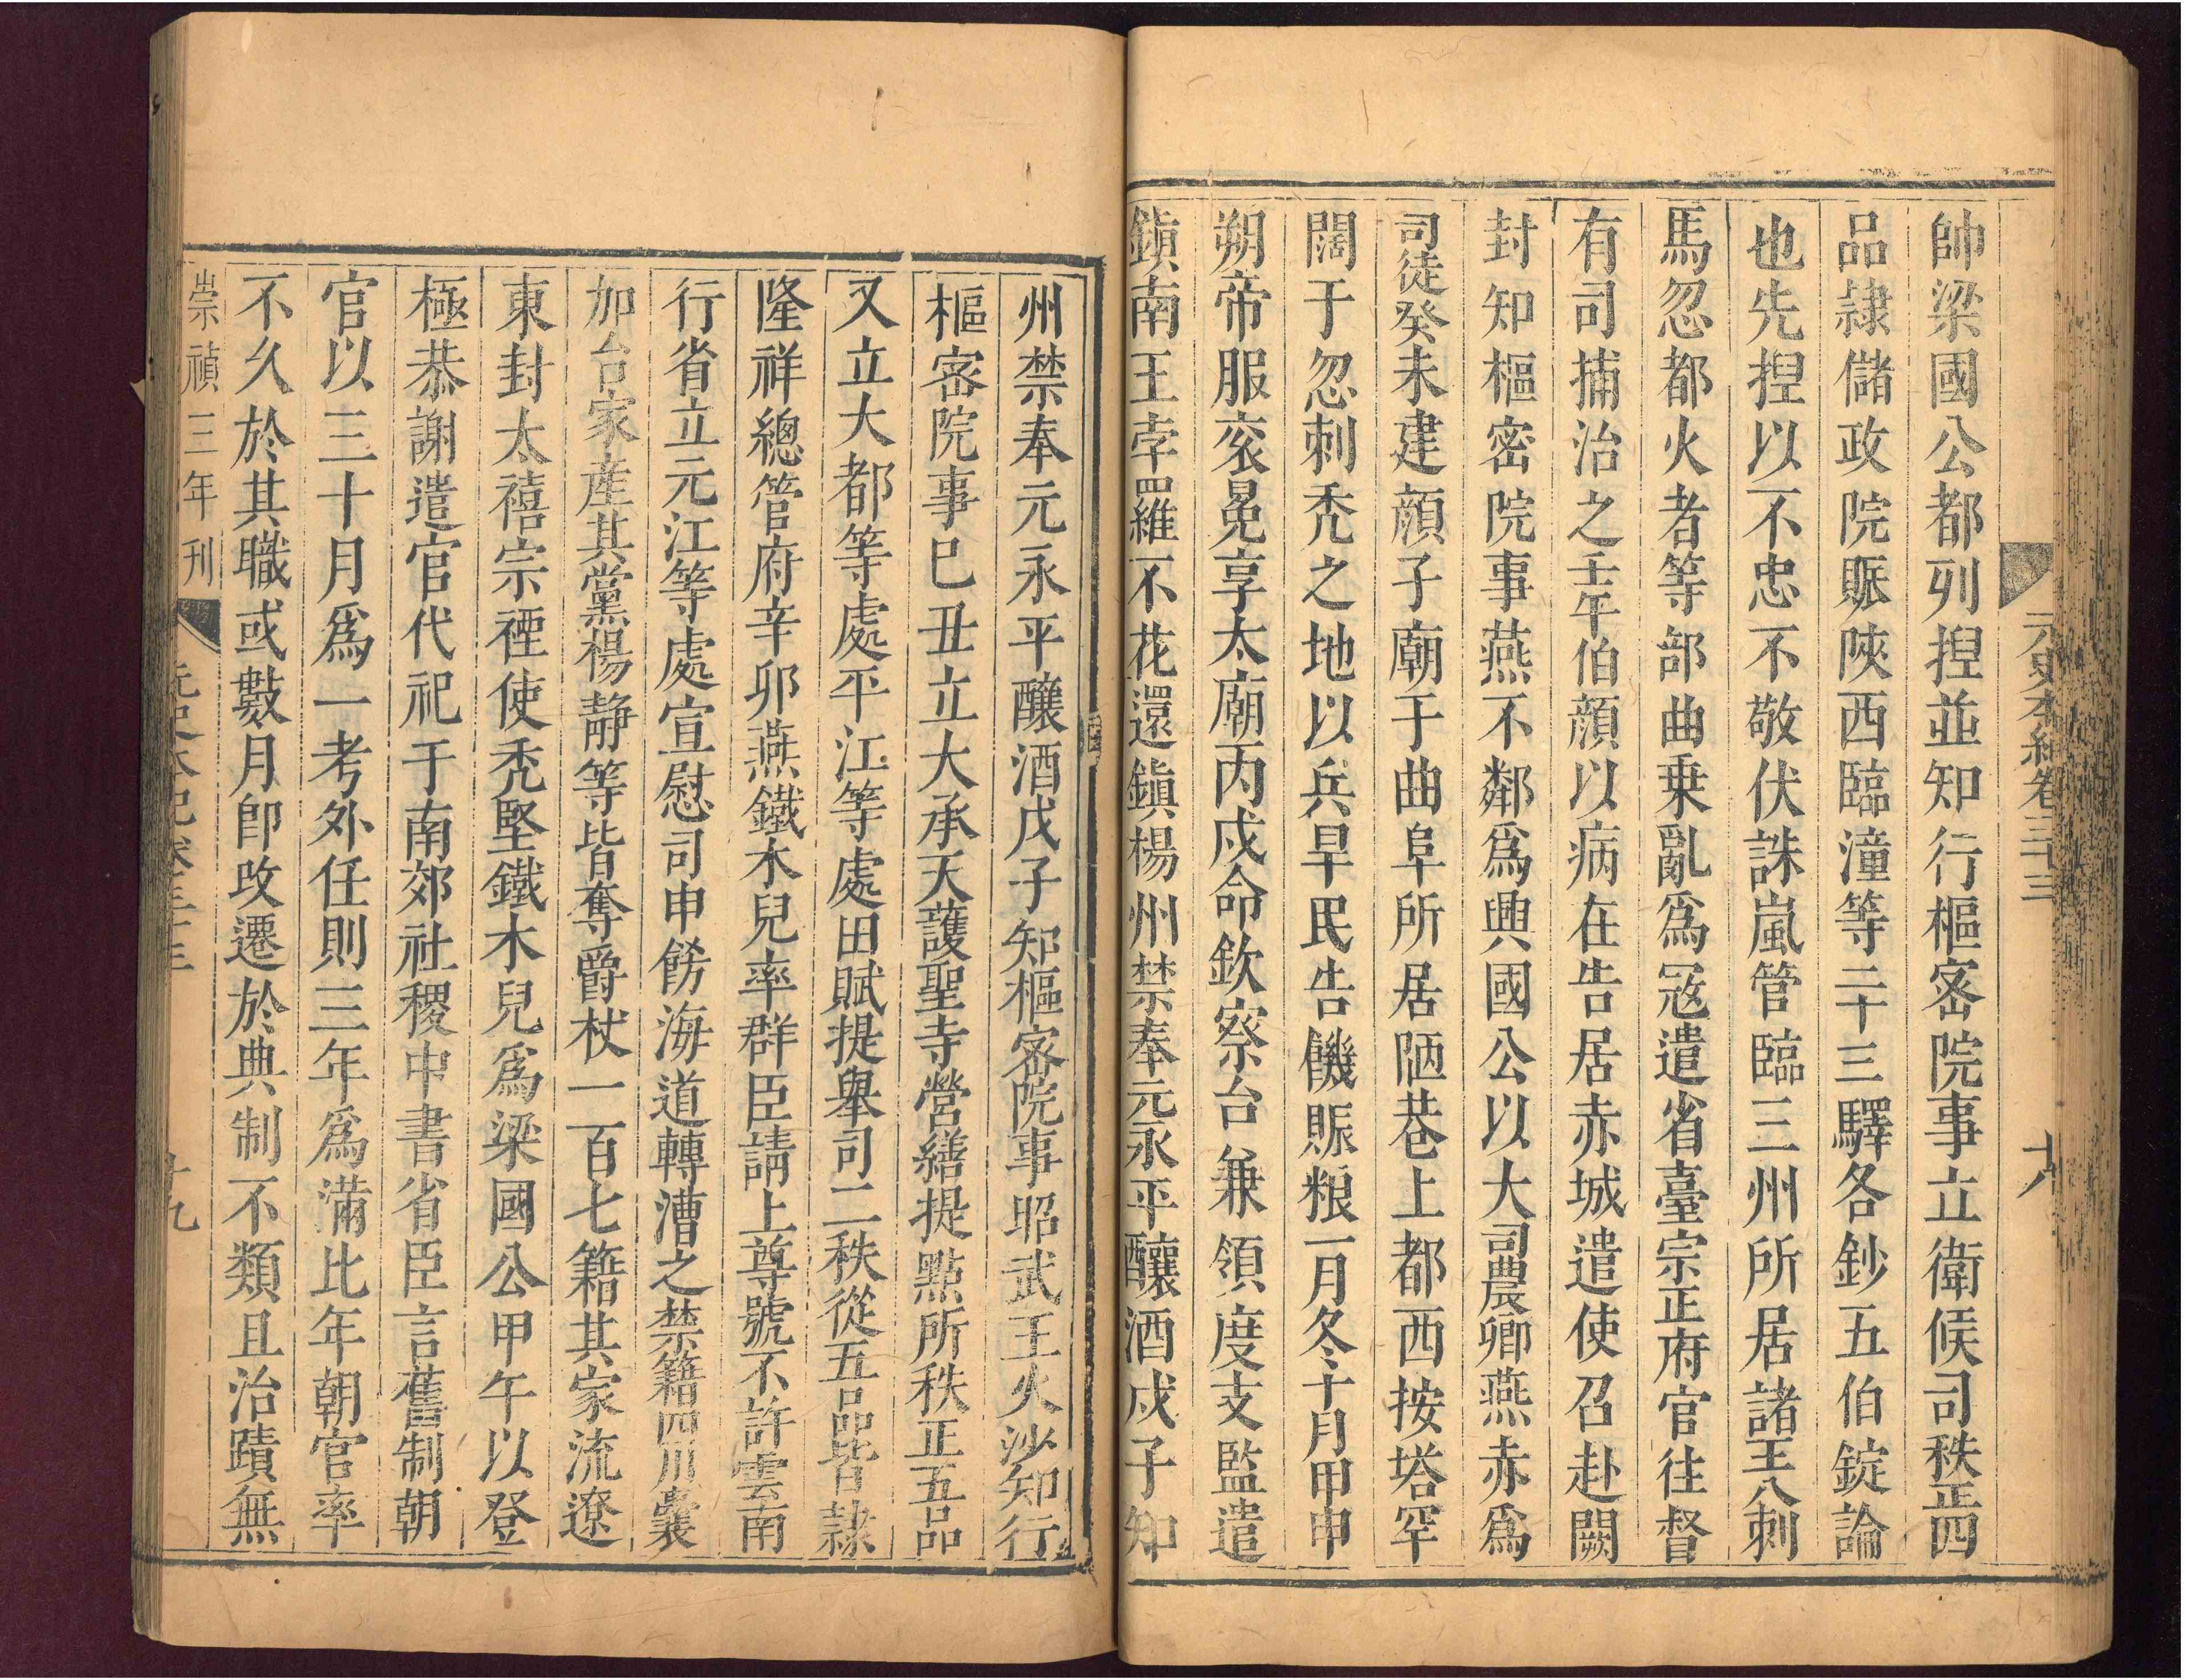 元史本紀卷三十三
十八
帥梁國公都列捏並知行樞密院事立衛候司秩正四
品隷儲政院賑陜西臨潼等二十三驛各鈔五伯錠論
也先捏以不忠不敬伏誅嵐管臨三州所居諸王八刺
馬忽都火者等部曲乗亂爲冦遣省臺宗正府官往督
有司捕治之壬午伯顔以病在告居赤城遣使召赴闕
封知樞密院事燕不鄰爲興國公以大司農卿燕赤爲
司徒癸未建顔子廟于曲阜所居陋巷上都西按塔罕
闊于忽刺禿之地以兵旱民告饑賑粮一月冬十月甲申
朔帝服衮冕享太廟丙戌命欽察台兼領度支監遣
鎮南王孛羅不花還鎮楊州禁奉元永平釀酒戊子知
州禁奉元永平釀酒戊子知樞密院事昭武王火沙知行
樞密院事巳丑立大承天護聖寺營繕提點所秩正五品
又立大都等處平江等處田賦提舉司二秩從五品皆隷
隆祥總管府辛卯燕鐵木兒率群臣請上尊號不許雲南
行省立元江等處宣慰司申飭海道轉漕之禁籍四川囊
加台家產其黨楊靜等皆奪爵杖一百七籍其家流遼
東封太禧宗禋使禿堅鐵木兒爲梁國公甲午以登
極恭謝遣官代祀于南郊社稷中書省臣言舊制朝
官以三十月爲一考外任則三年爲滿比年朝官率
不久於其職或數月卽改遷於典制不類且治蹟無
崇禎三年刊
元史本紀卷三十三
十九